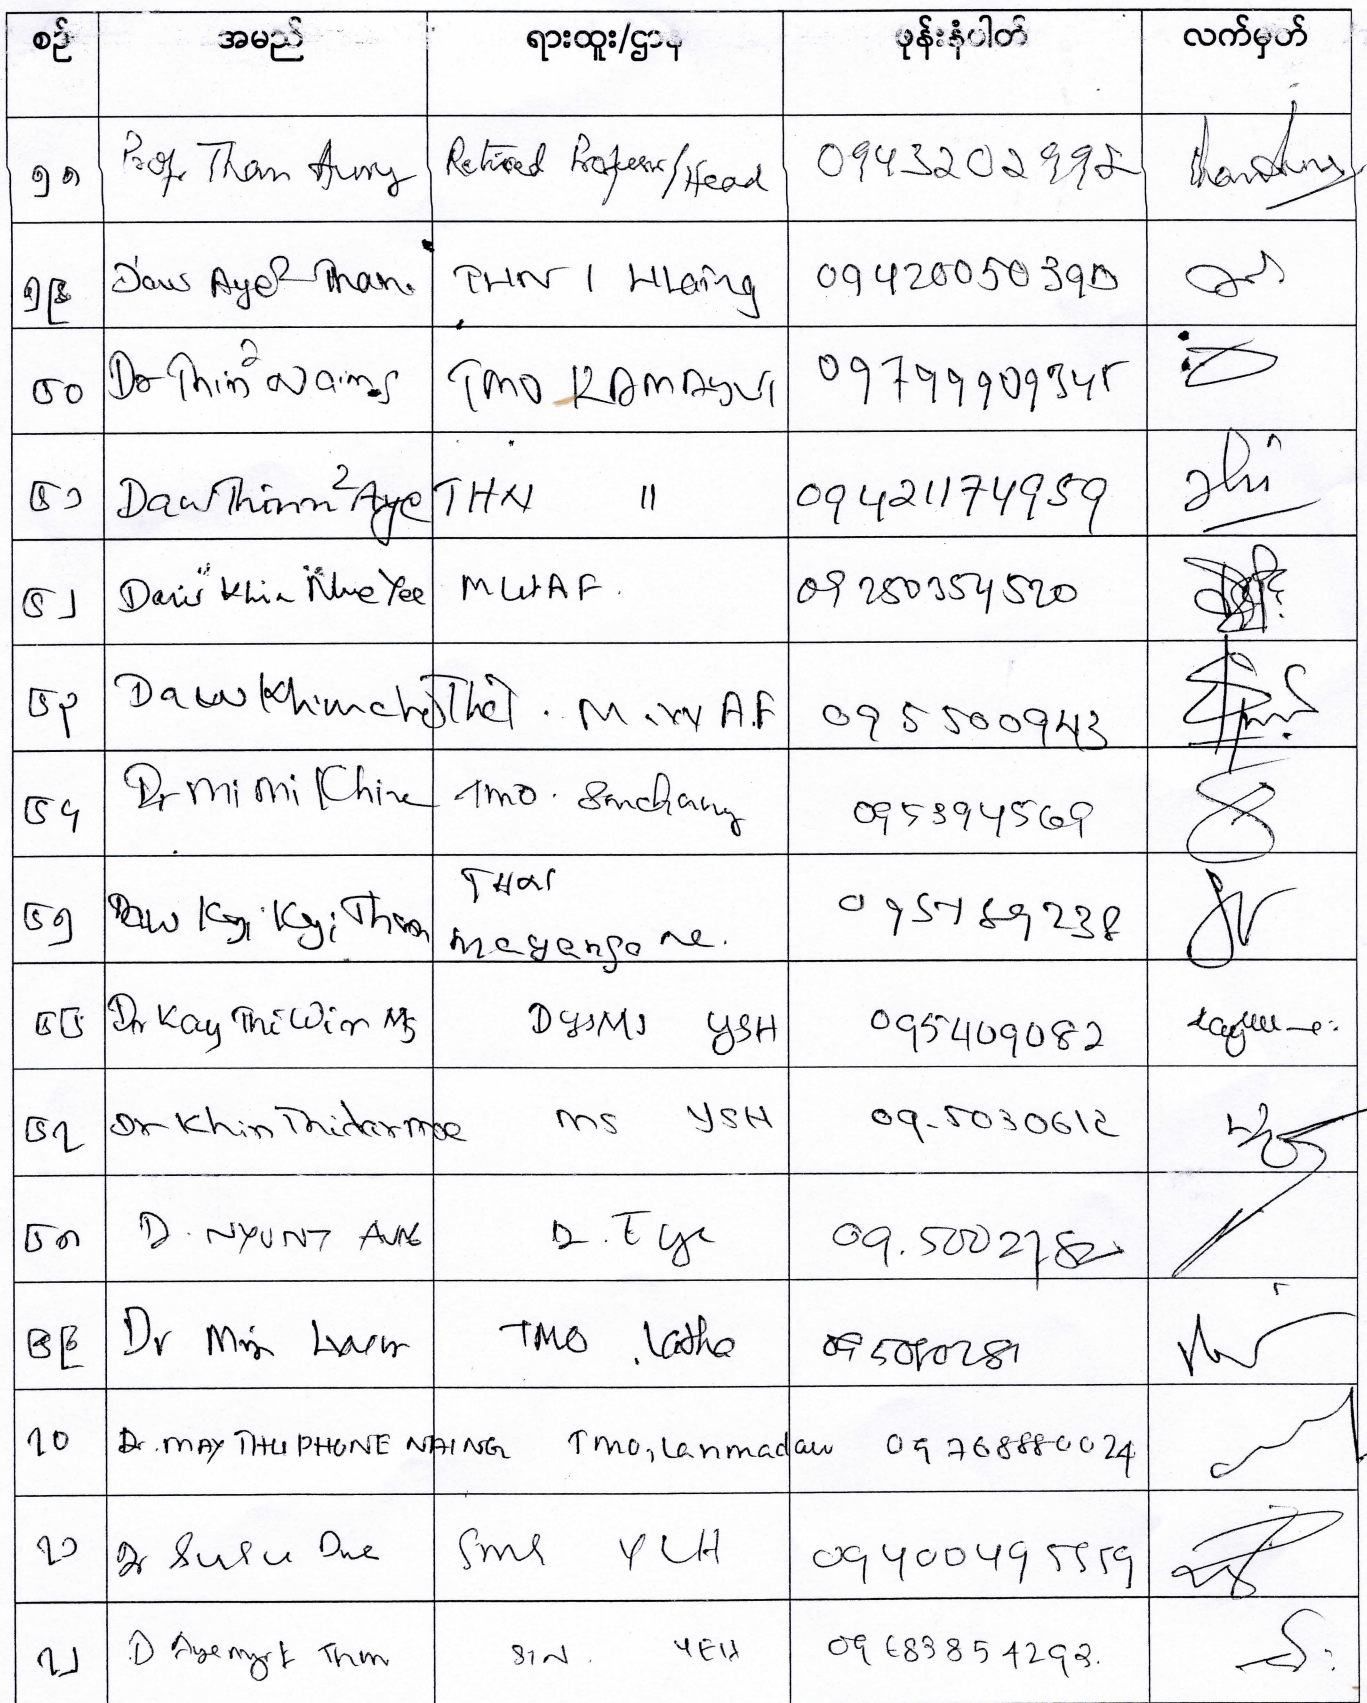 စဉ် အမည် ရာထူး/ဌာန ဖုန်းနံပါတ် လက်မှတ်
၅၈ Prof. Than Aung Retired Professor/Head 09432029992
၅၉ Daw Aye2 Than THN 1 Hlaing 09420050390
၆၀ Dr Thin2 Naing TMO KAMAYUT 09799909345
၆၁ Daw Thinn2 Aye THN " 09421174959
၆၂ Daw Khin Nwe Yee MWAF. 09250354520
၆၃ Daw Khin Cho Thet. M.WAF 095500943
၆၄ Dr Mi Mi Khine TMO. Sanchaung 095394569
၆၅ Daw Kyi Kyi Than THN 095189238
Mayangone.
၆၆ Dr Kay Thi Win MS DyMS YSH 095409082
၆၇ Dr Khin Thidar Moe MS YSH 09-5030612
၆၈ D. NYUNT AUNG 09.5002782
၆၉ Dr Min Lwin TMO Latha 095090281
၇၀ Dr. MAY THU PHONE NAING TMO, Lanmadaw 09768880024
၇၁ Dr Su Su Dwe SMS YCH 09400495559
၇၂ D Aye Myat Thin YEH 09683854293.